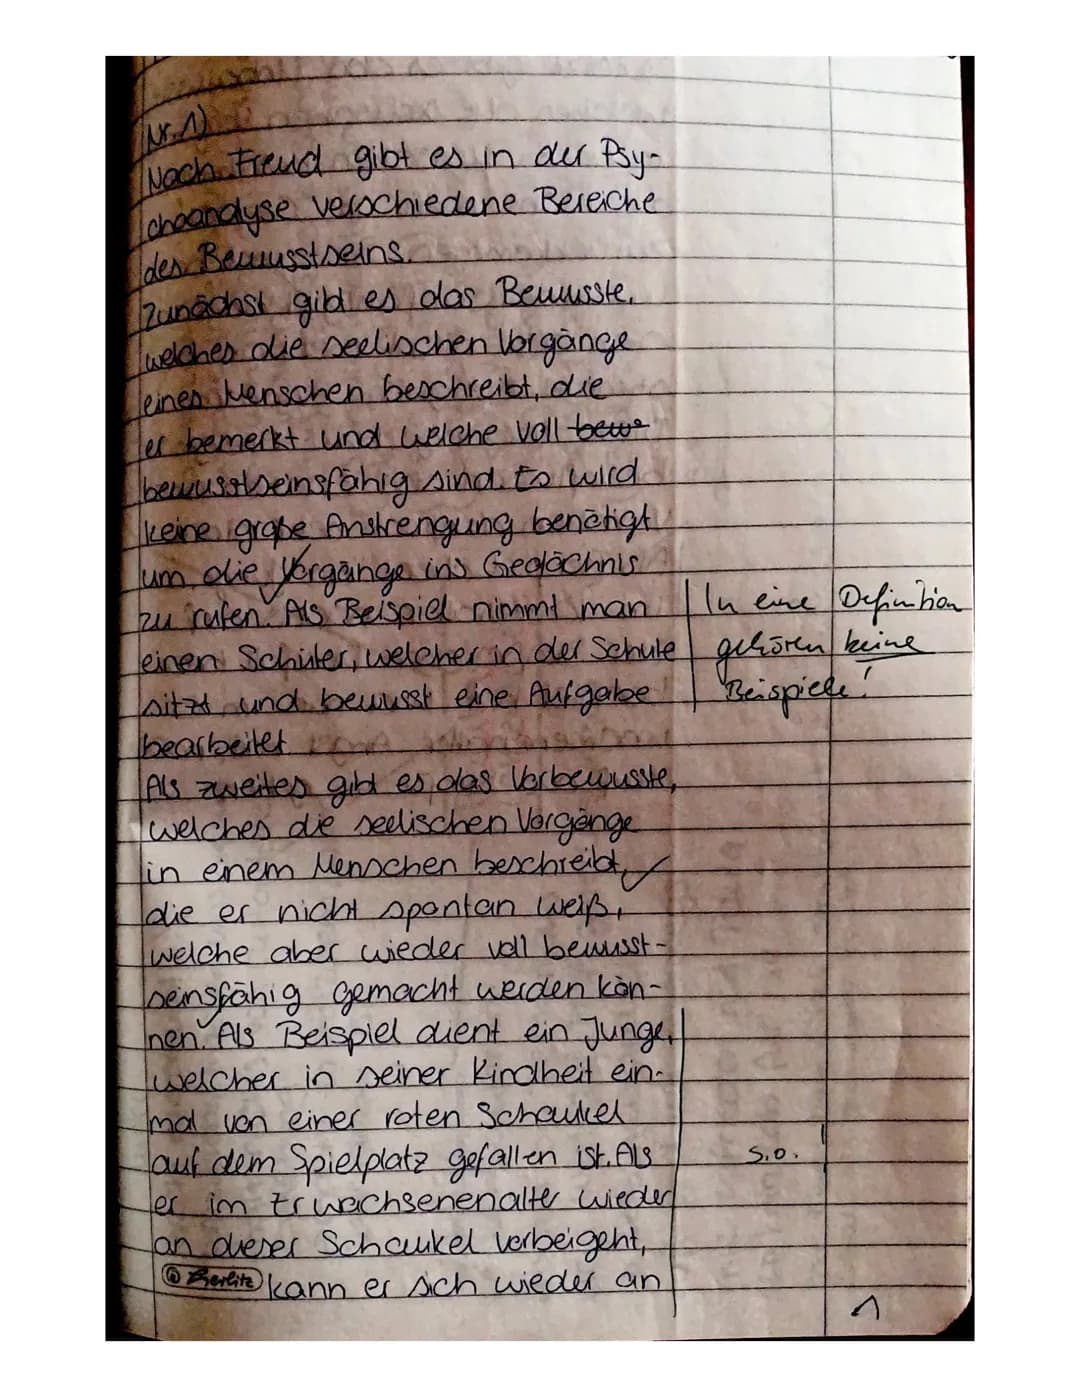 Nr. 1)
Nach Freud gibt es in der Psy-
choanalyse verschiedene Bereiche
des Bewusstseins.
Zunächst gibt es das Bewusste,
welches die seelischen Vorgänge
eines Menschen beschreibt, die
er bemerkt und welche voll bew
bewusstseinsfähig sind. Es wird
keine große Anstrengung benötigt
um die Vorgänge ins Gedächnis
zu rufen. Als Beispiel nimmt man
einen Schüler, welcher in der Schule
sitzt und bewusst eine Aufgabe
bearbeitet
Als zweites gibt es das Vorbewusste,
welches die seelischen Vorgänge
in einem Menschen beschreibt,
die er nicht spontan weiß,
welche aber wieder voll bewusst-
seinsfähig gemacht werden kön-
nen. Als Beispiel dient ein Junge,
welcher in seiner Kindheit ein-
mal von einer roten Schaukel
auf dem Spielplatz gefallen ist. Als
er im Erwachsenenalter wieder
an dieser Schaukel vorbeigeht,
kann er sich wieder an
In eine Definition
gehören keine
Beispiele!
s.o.
1
Berlitz